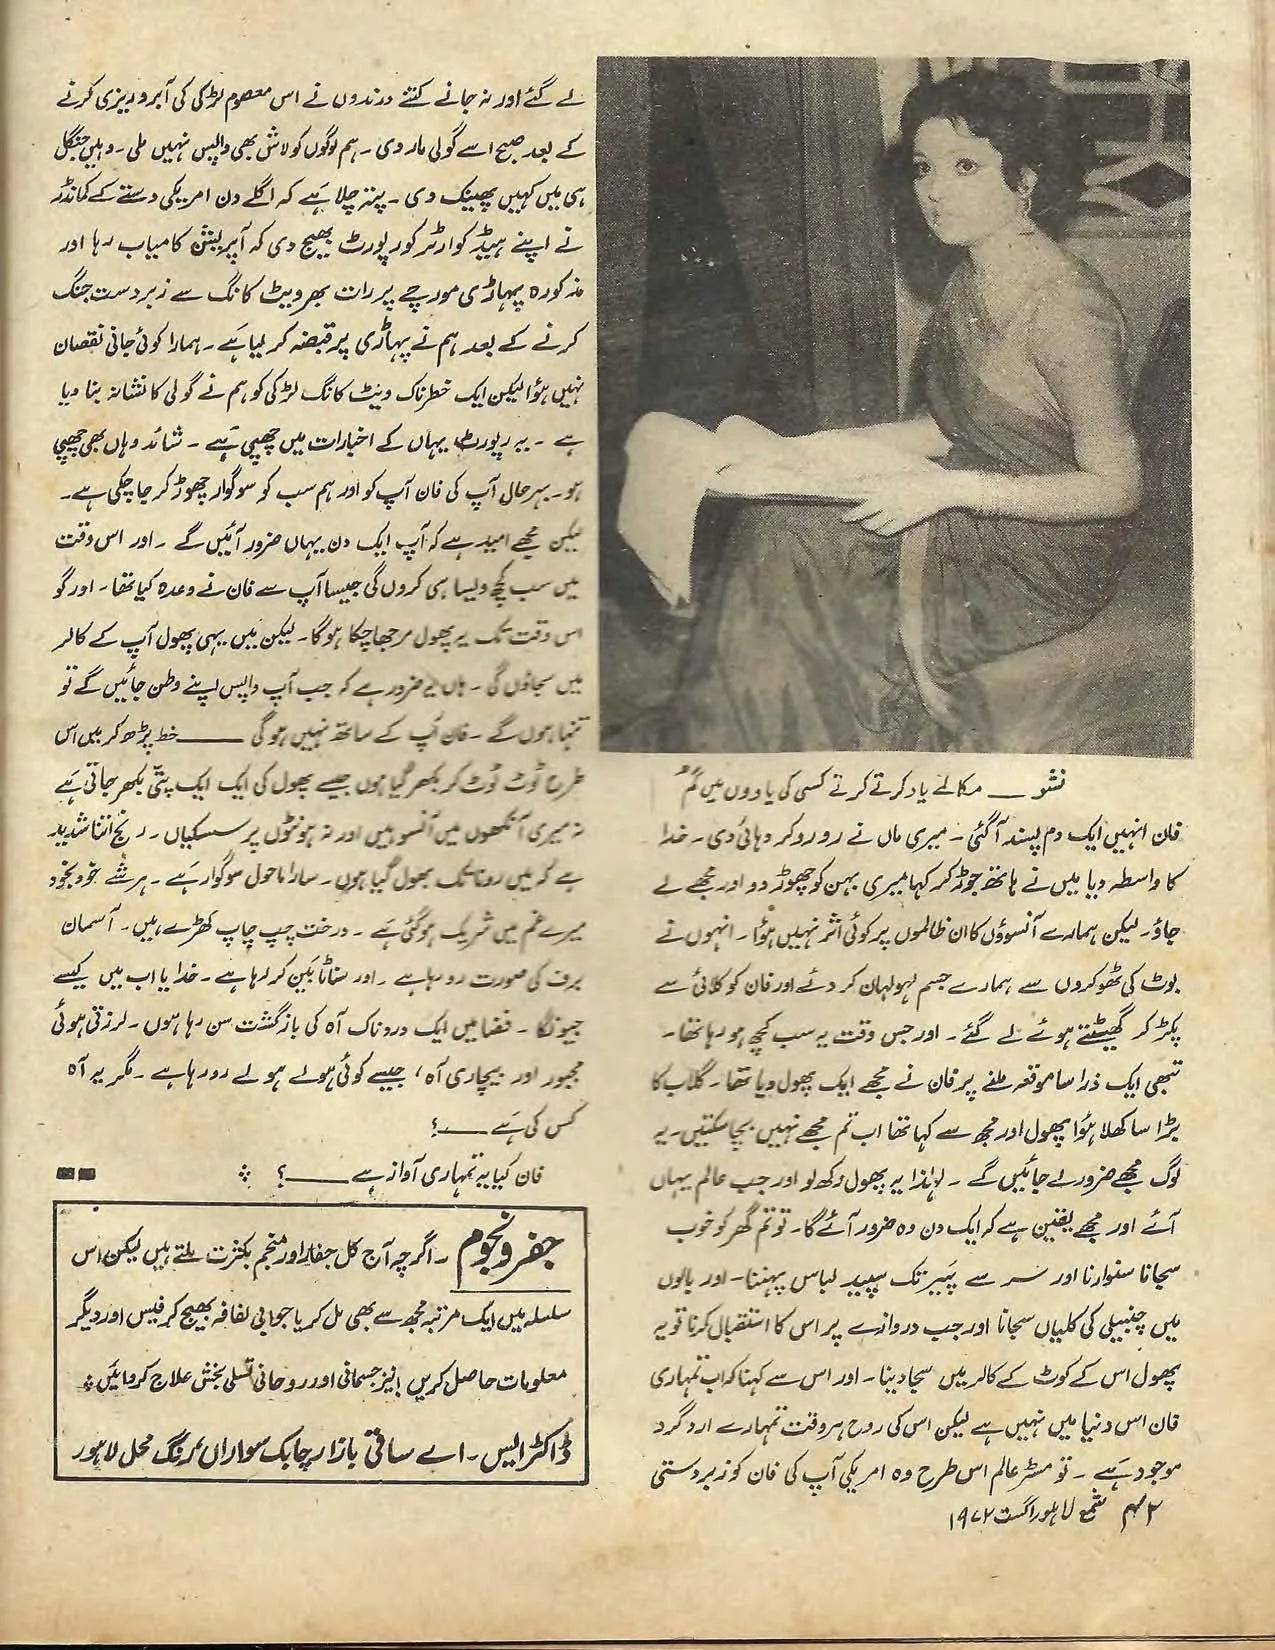 نشو ــــ مکالمے یاد کرتے کرتے کسی کی یادوں میں گم
فان انہیں ایک دم پسند آگئی ۔ میری ماں نے رو رو کر دہائی دی ۔ خدا
کا واسطہ دیا میں نے ہاتھ جوڑ کر کہا میری بہن کو چھوڑ دو اور مجھے لے
جاؤ۔ لیکن ہمارے آنسوؤں کا ان ظالموں پر کوئی اثر نہیں ہؤا ۔ انہوں نے
بوٹ کی ٹھوکروں سے ہمارے جسم لہولہان کر دئے اور فان کو کلائی سے
پکڑ کر گھیٹتے ہوئے لے گئے ۔ اور جس وقت یہ سب کچھ ہو رہا تھا ۔
تبھی ایک ذرا سا موقعہ ملنے پر فان نے مجھے ایک پھول دیا تھا ۔ گلاب کا
بڑا سا کھلا ہؤا پھول اور مجھ سے کہا تھا اب تم مجھے نہیں بچا سکتیں ۔ یہ
لوگ مجھے ضرور لے جائیں گے ۔ لہٰذا یہ پھول رکھ لو اور جب عالم یہاں
آئے اور مجھے یقین ہے کہ ایک دن وہ ضرور آئے گا ۔ تو تم گھر کو خوب
سجانا سنوارنا اور سر سے پَیر تک سپید لباس پہننا ۔ اور بالوں
میں چنبیلی کی کلیاں سجانا اور جب دروازے پر اس کا استقبال کرنا تو یہ
پھول اس کے کوٹ کے کالر میں سجا دینا ۔ اور اس سے کہنا کہ اب تمہاری
فان اس دنیا میں نہیں ہے لیکن اس کی روح ہر وقت تمہارے اردگرد
موجود ہَے ۔ تو مسٹر عالم اس طرح وہ امریکی آپ کی فان کو زبردستی
لے گئے اور نہ جانے کتنے درندوں نے اس معصوم لڑکی کی آبروریزی کرنے
کے بعد صبح اسے گولی مار دی ۔ ہم لوگوں کو لاش بھی واپس نہیں ملی ۔ وہیں جنگل
ہی میں کہیں پھینک دی ۔ پتہ چلا ہَے کہ اگلے دن امریکی دستے کے کمانڈر
نے اپنے ہیڈ کوارٹر کو رپورٹ بھیج دی کہ آپریشن کامیاب رہا اور
مذکورہ پہاڑی مورچے پر رات بھر ویٹ کانگ سے زبردست جنگ
کرنے کے بعد ہم نے پہاڑی پر قبضہ کر لیا ہَے ۔ ہمارا کوئی جانی نقصان
نہیں ہؤا لیکن ایک خطرناک ویٹ کانگ لڑکی کو ہم نے گولی کا نشانہ بنا دیا
ہے ۔ یہ رپورٹ یہاں کے اخبارات میں چھپی ہَے ۔ شائد وہاں بھی چھپی
ہو ۔ بہرحال آپ کی فان آپ کو اور ہم سب کو سوگوار چھوڑ کر جا چکی ہے ۔
لیکن مجھے امید ہے کہ آپ ایک دن یہاں ضرور آئیں گے ۔ اور اس وقت
میں سب کچھ ویسا ہی کروں گی جیسا آپ سے فان نے وعدہ کیا تھا ۔ اور گو
اس وقت تک یہ پھول مرجھا چکا ہوگا ۔ لیکن میں یہی پھول آپ کے کالر
میں سجاؤں گی ۔ ہاں یہ ضرور ہے کہ جب آپ واپس اپنے وطن جائیں گے تو
تنہا ہوں گے ۔ فان آپ کے ساتھ نہیں ہوگی ــــــ خط پڑھ کر میں اس
طرح ٹوٹ ٹوٹ کر بکھر گیا ہوں جیسے پھول کی ایک ایک پتّی بکھر جاتی ہَے
نہ میری آنکھوں میں آنسو ہیں اور نہ ہونٹوں پر سسکیاں ۔ رنج اتنا شدید
ہے کہ میں رونا تک بھول گیا ہوں ۔ سارا ماحول سوگوار ہَے ۔ ہر شے خود بخود
میرے غم میں شریک ہو گئی ہَے ۔ درخت چپ چاپ کھڑے ہیں ۔ آسمان
برف کی صورت رو رہا ہے ۔ اور سناٹا بَین کر رہا ہے ۔ خدایا اب میں کیسے
جیوں گا ۔ فضا میں ایک دردناک آہ کی بازگشت سن رہا ہوں ۔ لرزتی ہوئی
مجبور اور بیچاری آہ ، جیسے کوئی ہولے ہولے رو رہا ہے ۔ مگر یہ آہ
کس کی ہَے ــــ ؟
فان کیا یہ تمہاری آواز ہے ــــــ ؟
جفر و نجوم ۔ اگرچہ آج کل جفار اور منجم بکثرت ملتے ہیں لیکن اس
سلسلہ میں ایک مرتبہ مجھ سے بھی مل کر یا جوابی لفافہ بھیج کر فیس اور دیگر
معلومات حاصل کریں نیز جسمانی اور روحانی تسلی بخش علاج کروائیں
ڈاکٹر ایس ۔ اے ساقی بازار چابک سواراں رنگ محل لاہور
۴۲ شمع لاہور اگست ۱۹۷۲